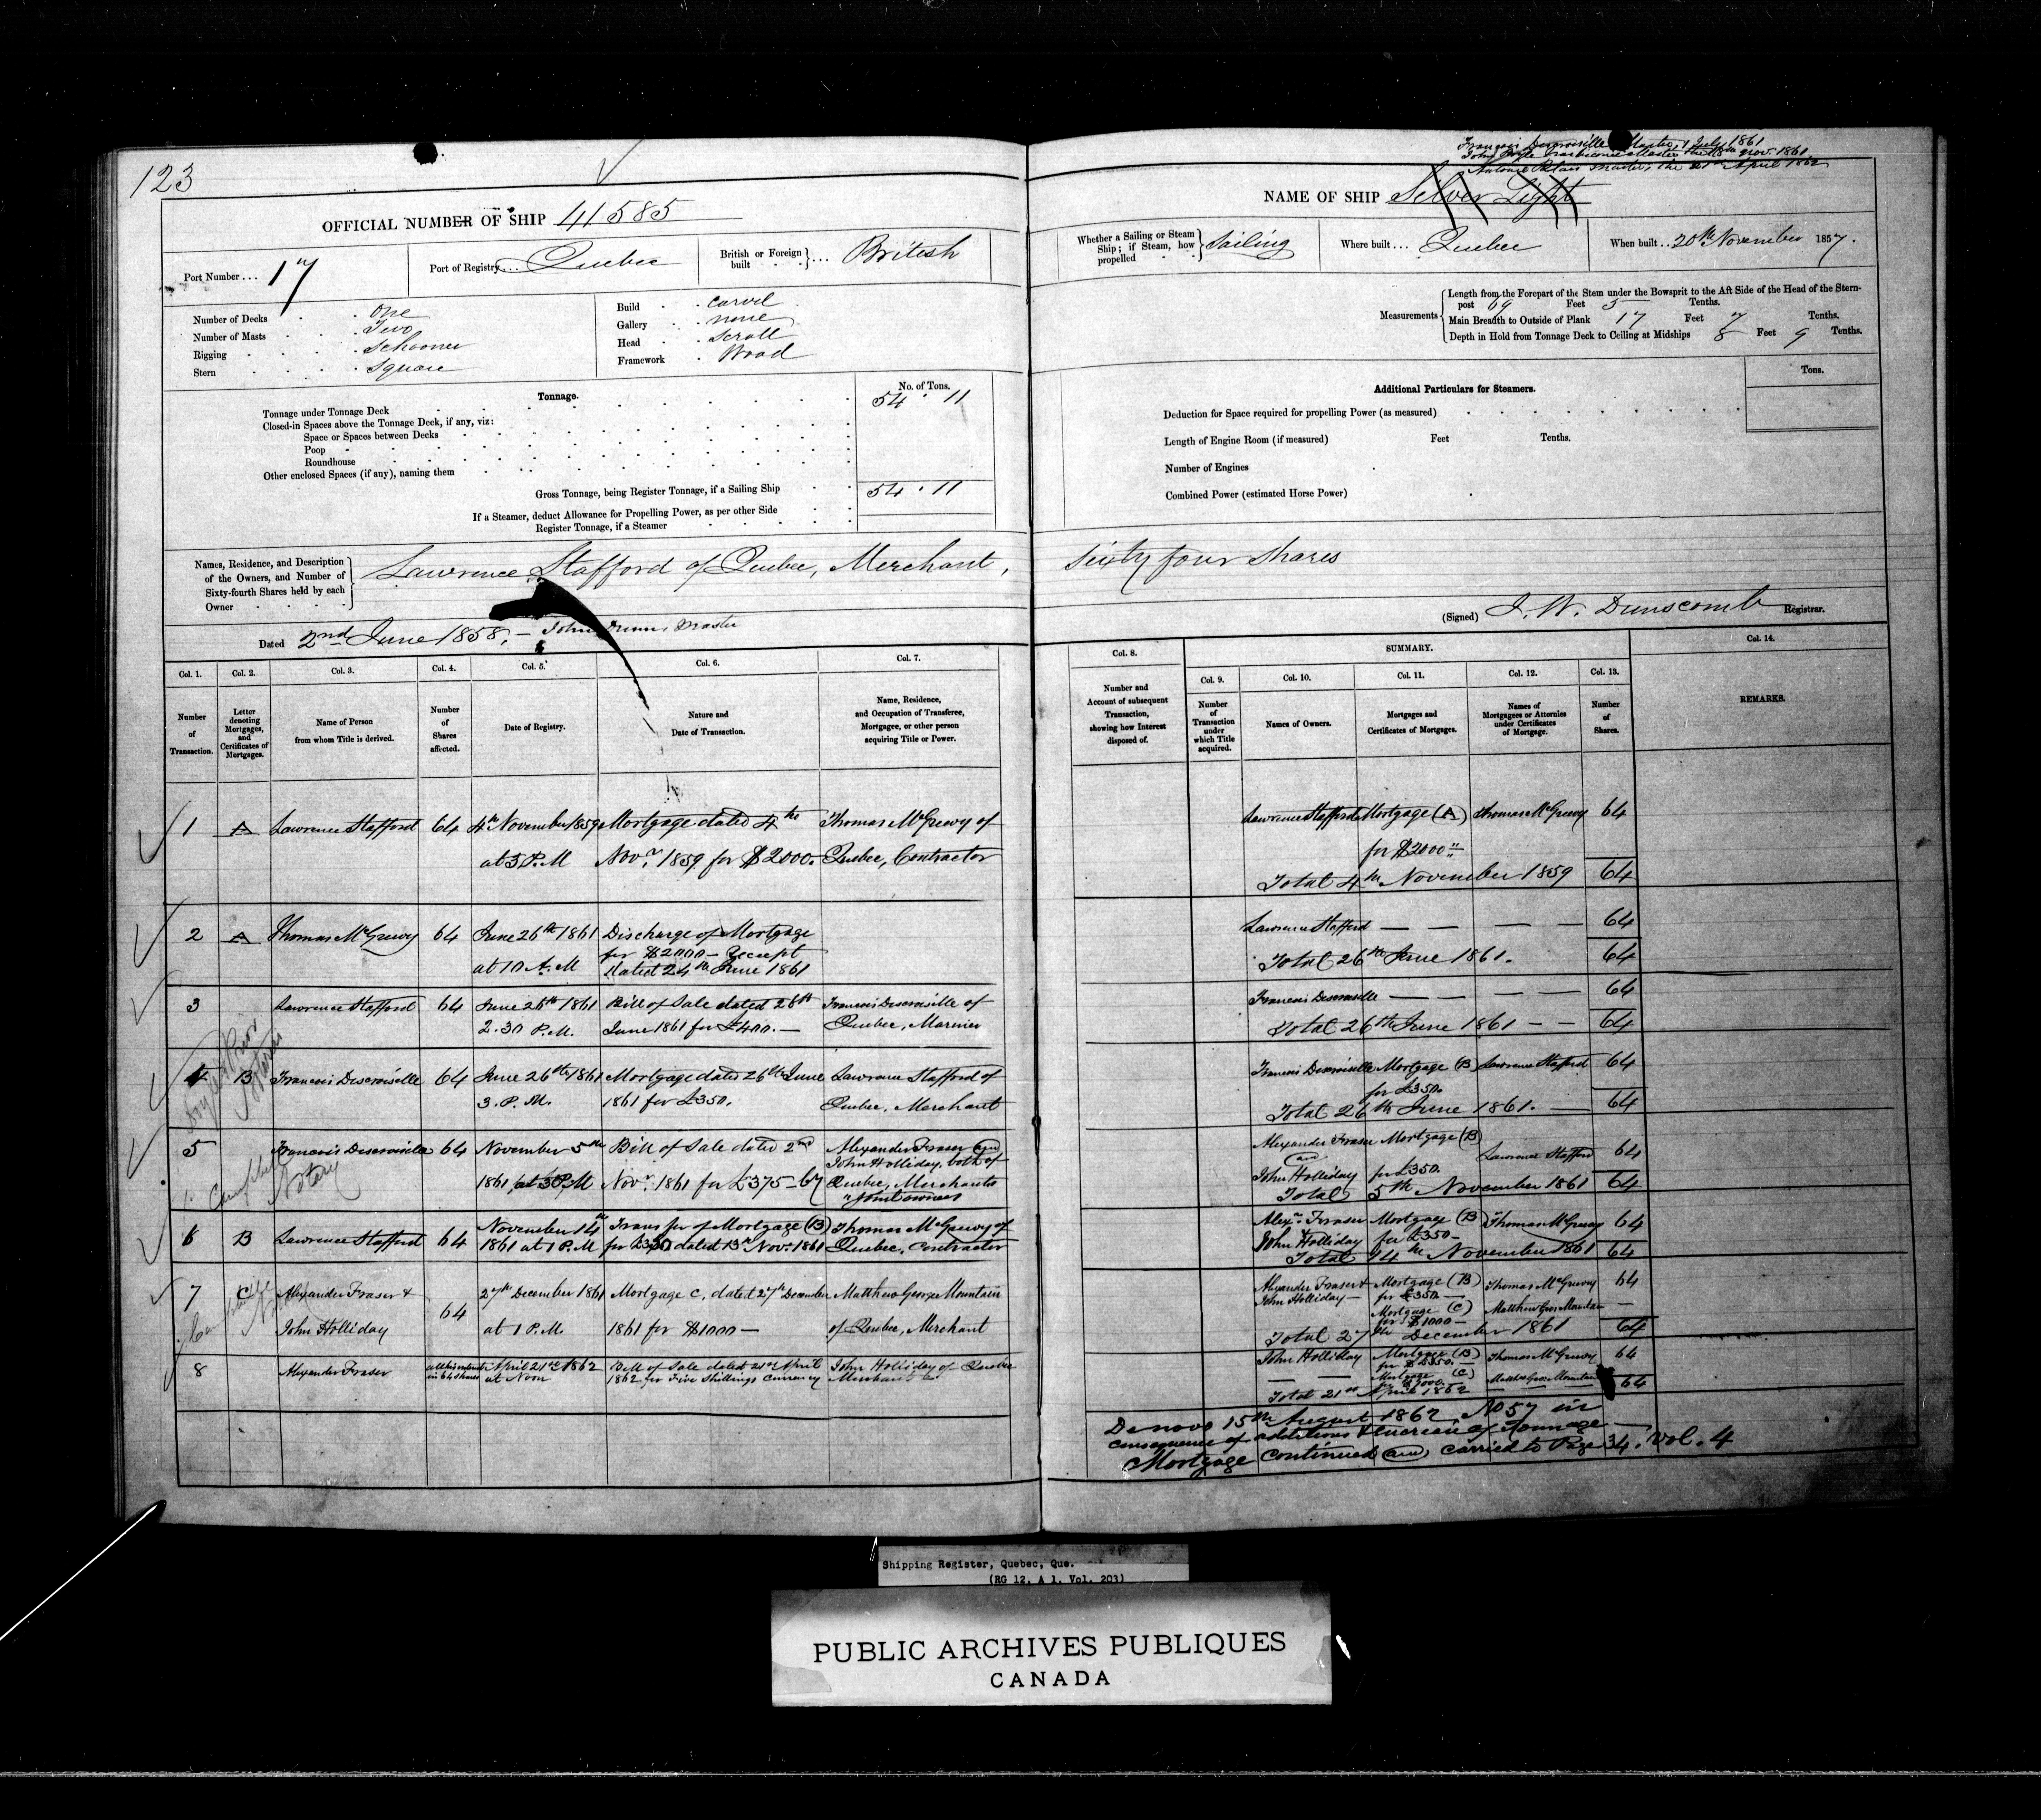 123
OFFICIAL NUMBER OF SHIP 41585
Port Number ... 17
Port of Registry ... Quebec
British or Foreign built ... British
Number of Decks One
Number of Masts Two
Rigging Schooner
Stern Square
Build Carvel
Gallery none
Head Scroll
Framework Wood
Tonnage.
No. of Tons.
Tonnage under Tonnage Deck 54 · 11
Closed-in Spaces above the Tonnage Deck, if any, viz:
Space or Spaces between Decks
Poop
Roundhouse
Other enclosed Spaces (if any), naming them
Gross Tonnage, being Register Tonnage, if a Sailing Ship 54 · 11
If a Steamer, deduct Allowance for Propelling Power, as per other Side
Register Tonnage, if a Steamer
Names, Residence, and Description of the Owners, and Number of Sixty-fourth Shares held by each Owner
Lawrence Stafford of Quebec, Merchant,
Dated 2nd June 1858. — John Master
Col. 1. Col. 2. Col. 3. Col. 4. Col. 5. Col. 6. Col. 7.
Number of Transaction.
Letter denoting Mortgages, and Certificates of Mortgages.
Name of Person from whom Title is derived.
Number of Shares affected.
Date of Registry.
Nature and Date of Transaction.
Name, Residence, and Occupation of Transferee, Mortgagee, or other person acquiring Title or Power.
1 A Lawrence Stafford 64 4th November 1859 Mortgage dated 4th Thomas McGreevy of
at 3 P.M Novr. 1859 for $2000. Quebec, Contractor
2 A Thomas McGreevy 64 June 26th 1861 Discharge of Mortgage
for $2000 — Receipt
at 10 A.M dated 24th June 1861
3 Lawrence Stafford 64 June 26th 1861 Bill of Sale dated 26th Francois Descroiselle of
2.30 P.M. June 1861 for £400. — Quebec, Mariner
4 B Francois Descroiselle 64 June 26th 1861 Mortgage dated 26th June Lawrence Stafford of
3. P.M. 1861 for £350. Quebec, Merchant
5 Francois Descroiselle 64 November 5th Bill of Sale dated 2nd Alexander Fraser and
John Holliday, both of
1861 at 3 P.M Novr. 1861 for £375 Quebec, Merchants
"Joint owners
6 B Lawrence Stafford 64 November 14th Transfer of Mortgage (B) Thomas McGreevy of
1861 at 1 P.M for £350 dated 13th Novr 1861 Quebec, Contractor
7 C Alexander Fraser & 64 27th December 1861 Mortgage C, dated 27th December Matthew George Mountain
John Holliday at 1 P.M. 1861 for $1000 — of Quebec, Merchant
8 Alexander Fraser all his interest April 21st 1862 Bill of Sale dated 21st April John Holliday of Quebec
in 64 shares at Noon 1862 for Five Shillings Currency Merchant
Notary
John Master the Novr 1861
Master, the 21st April 1862
NAME OF SHIP Silver Light
Whether a Sailing or Steam Ship; if Steam, how propelled Sailing
Where built ... Quebec
When built .. 20th November 1857.
Measurements
Length from the Forepart of the Stem under the Bowsprit to the Aft Side of the Head of the Stern-
post 69 Feet 5 Tenths.
Main Breadth to Outside of Plank 17 Feet 7 Tenths.
Depth in Hold from Tonnage Deck to Ceiling at Midships 8 Feet 9 Tenths.
Additional Particulars for Steamers.
Tons.
Deduction for Space required for propelling Power (as measured)
Length of Engine Room (if measured) Feet Tenths.
Number of Engines
Combined Power (estimated Horse Power)
Sixty four Shares
(Signed) J. W. Dunscomb Registrar.
SUMMARY.
Col. 8. Col. 9. Col. 10. Col. 11. Col. 12. Col. 13. Col. 14.
Number and Account of subsequent Transaction, showing how Interest disposed of.
Number of Transaction under which Title acquired.
Names of Owners.
Mortgages and Certificates of Mortgages.
Names of Mortgagees or Attornies under Certificates of Mortgage.
Number of Shares.
REMARKS.
Lawrence Stafford Mortgage (A) Thomas McGreevy 64
for $2000
Total 4th November 1859 64
Lawrence Stafford — — — — 64
Total 26th June 1861. 64
Francois Descroiselle — — — — 64
Total 26th June 1861 — — 64
Francois Descroiselle Mortgage (B) Lawrence Stafford 64
for £350.
Total 26th June 1861. — 64
Alexander Fraser Mortgage (B)
and Lawrence Stafford 64
John Holliday for £350
Total 5th November 1861 64
Alexr. Fraser Mortgage (B) Thomas McGreevy 64
John Holliday for £350 —
Total 14th November 1861 64
Alexander Fraser & Mortgage (B) Thomas McGreevy 64
John Holliday — for £350 —
Mortgage (C) Matthew Geo. Mountain —
for $1000 —
Total 27th December 1861 64
John Holliday Mortgage (B) Thomas McGreevy 64
for £350. —
— — Mortgage (C) Matthew Geo. Mountain
$1000.
Total 21st April 1862 64
De novo 15th August 1862 No 57 in
consequence of additions & increase of Tonnage —
Mortgage continued and carried to Page 34. Vol. 4
Shipping Register, Quebec, Que.
(RG 12, A 1, Vol. 203)
PUBLIC ARCHIVES PUBLIQUES
CANADA